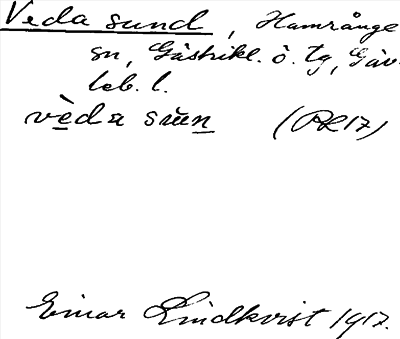 Veda sund, Hamrånge
sn, Gästrikl. ö. tg, Gäv-
leb. l.
vèda sun
(PR17)
Einar Lindkvist 1917.